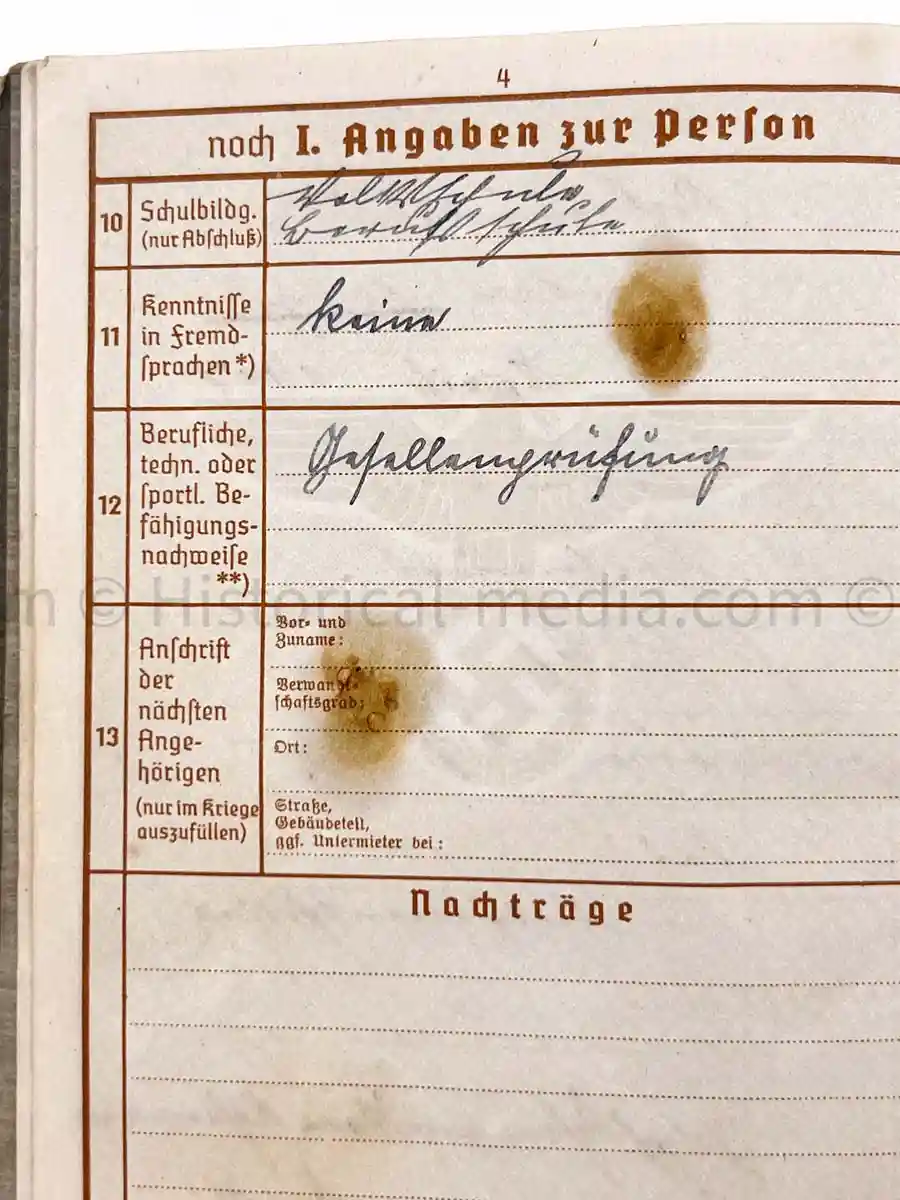 4
noch I. Angaben zur Person
10 Schulbildg. (nur Abschluß)
Volksschule
Berufsschule
11 Kenntnisse in Fremd- sprachen *)
keine
12 Berufliche, techn. oder sportl. Be- fähigungs- nachweise **)
Gesellenprüfung
© Historical-media.com ©
13 Anschrift der nächsten Ange- hörigen (nur im Kriege auszufüllen)
Vor- und
Zuname:
Verwandt-
schaftsgrad:
Ort:
Straße,
Gebäudeteil,
ggf. Untermieter bei:
Nachträge